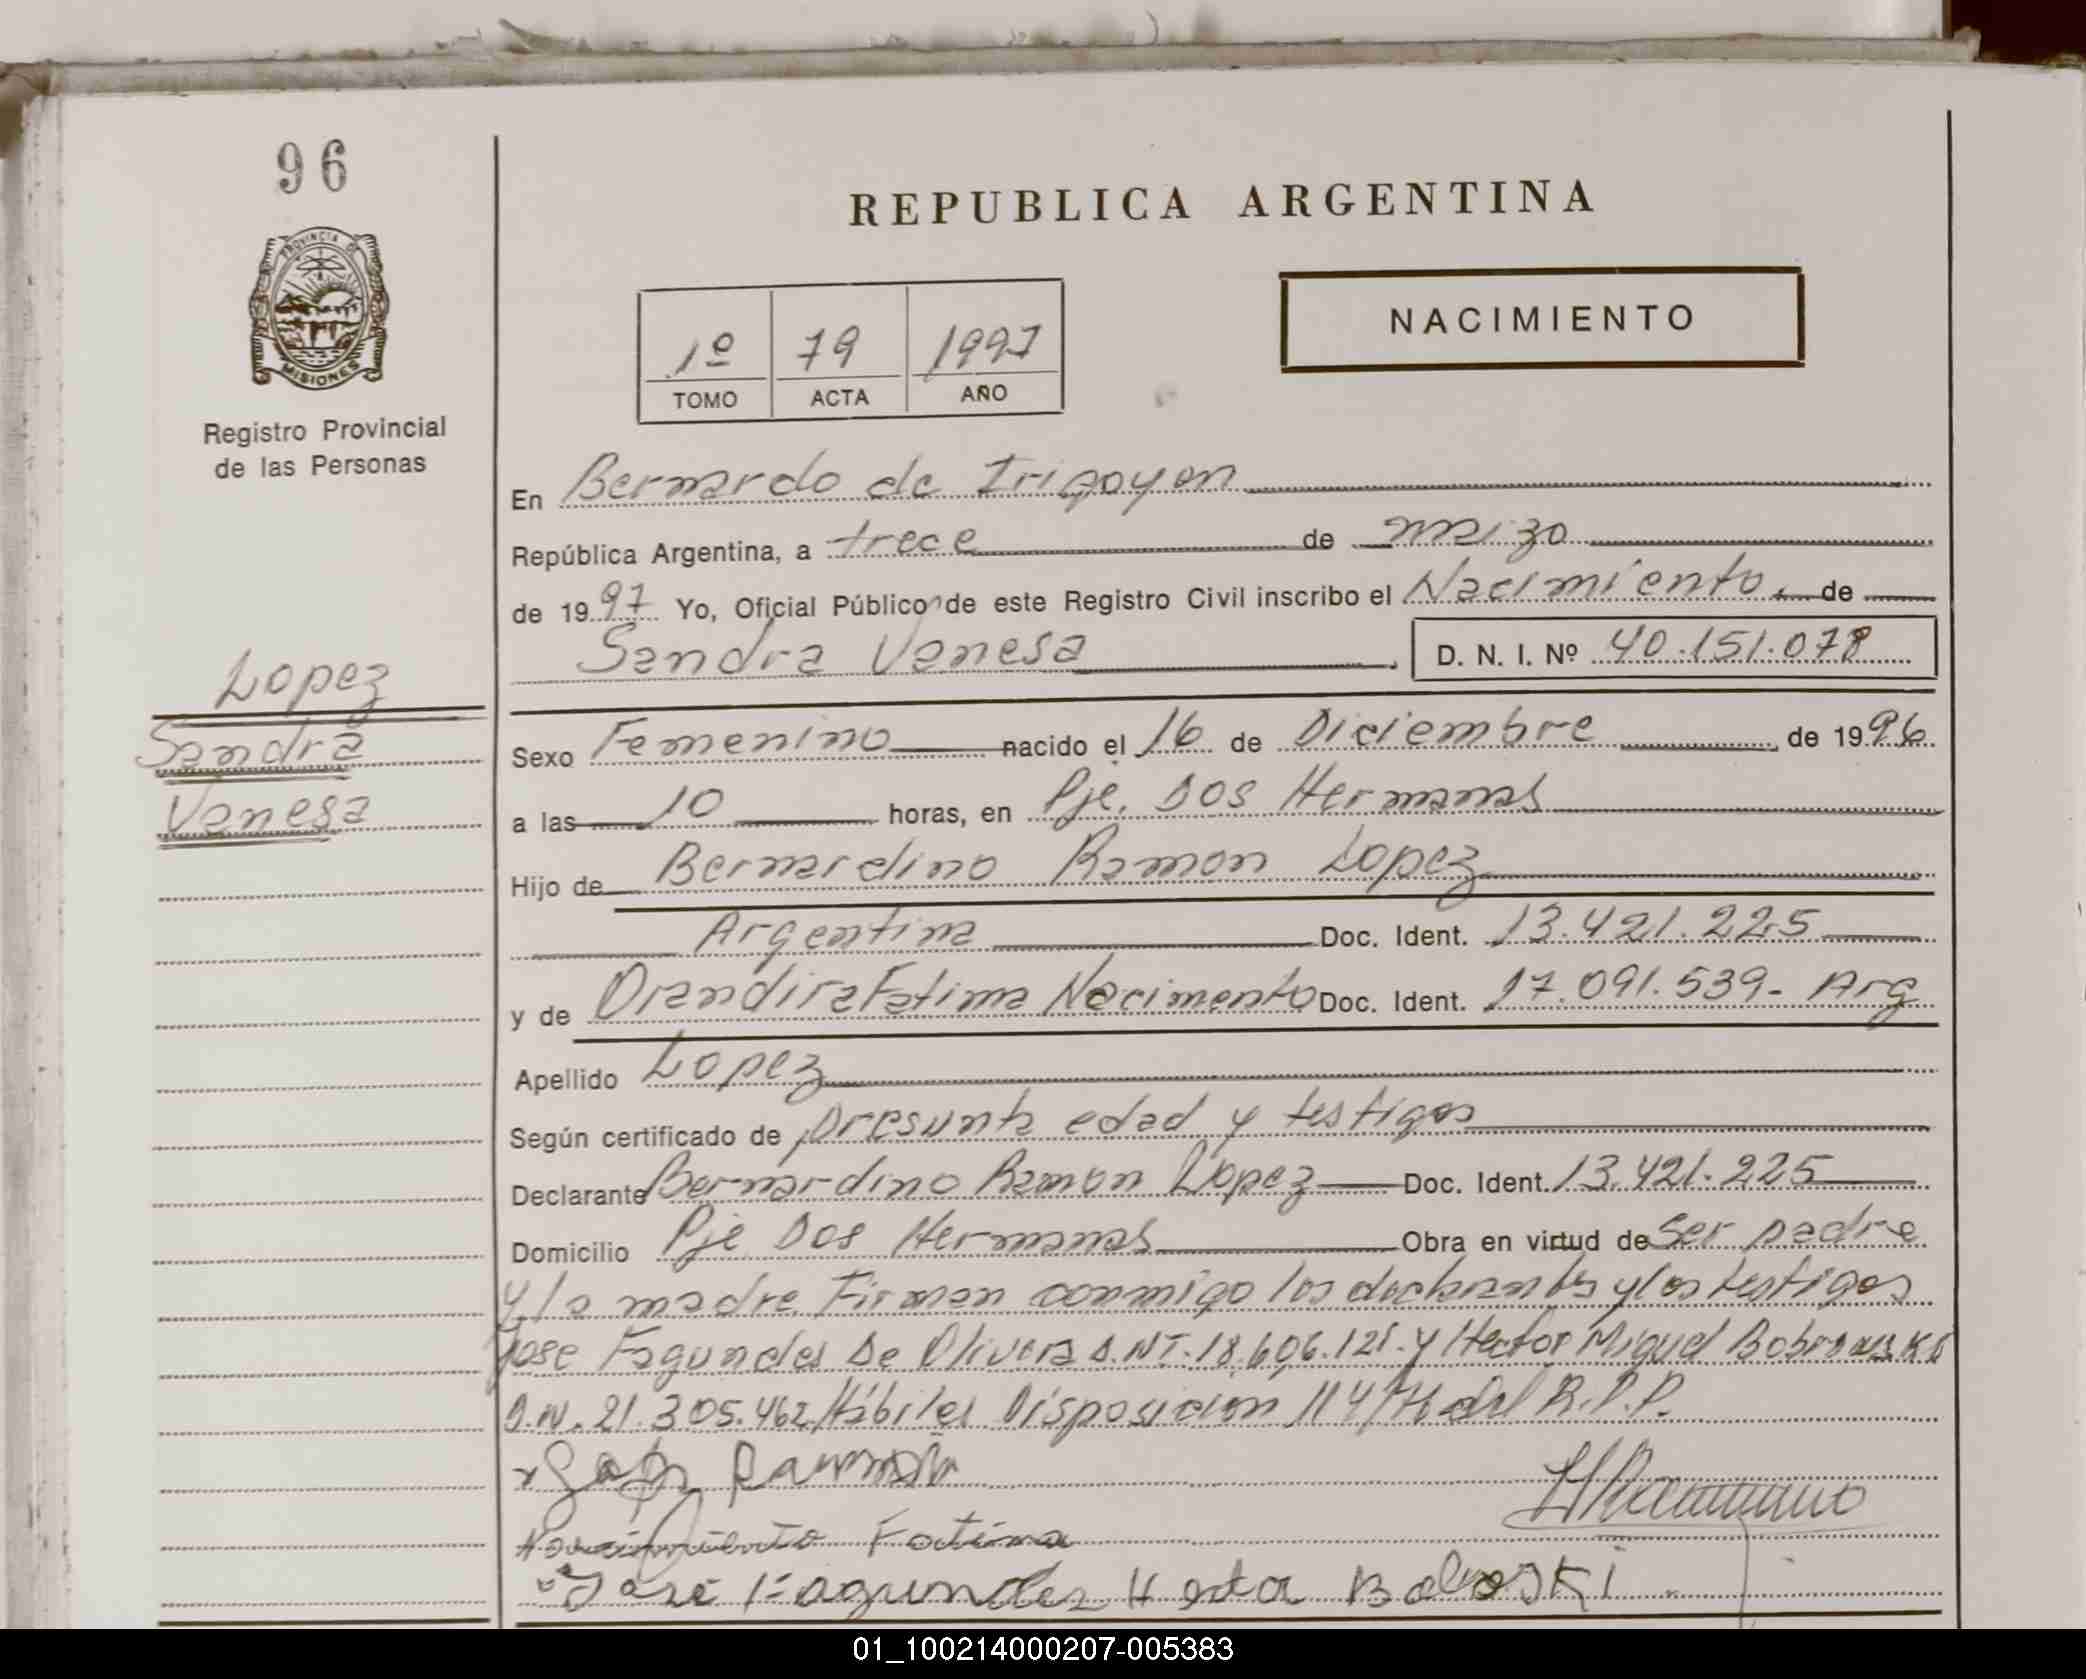 96
REPUBLICA ARGENTINA
PROVINCIA DE
MISIONES
Registro Provincial
de las Personas
NACIMIENTO
1º 79 1997
TOMO ACTA AÑO
En Bernardo de Irigoyen
República Argentina, a trece de marzo
de 1997 Yo, Oficial Público de este Registro Civil inscribo el Nacimiento. de
Sandra Vanesa D. N. I. Nº 40.151.078
Lopez
Sandra
Vanesa
Sexo Femenino nacido el 16 de Diciembre de 1996
a las 10 horas, en Pje. Dos Hermanas
Hijo de Bernardino Ramon Lopez
Argentina Doc. Ident. 13.421.225
y de Diandira Fatima Nacimento Doc. Ident. 17.091.539- Arg
Apellido Lopez
Según certificado de presunta edad y testigos
Declarante Bernardino Ramon Lopez Doc. Ident. 13.421.225
Domicilio Pje Dos Hermanas Obra en virtud de Ser padre
y la madre. Firman conmigo los declarantes y los testigos
Jose Fagundes De Olivera D.N.I. 18.606.121. y Hector Miguel
D.N. 21.305.462 Hábiles Disposicion 114/76 del R.P.P.
Ramon
Fatima
Jose Fagundez
01_100214000207-005383